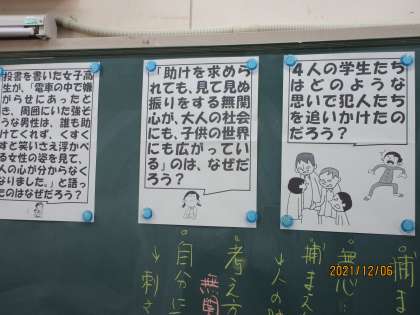 投書を書いた女子高
生が、「電車の中で嫌
がらせにあったと
き、周囲にいた強そ
うな男性は、誰も助
けてくれず、くすく
すと笑いさえ浮かべ
る女性の姿を見て、
人の心が分からなく
なりました。」と語っ
たのはなぜだろう？
「助けを求めら
れても、見て見ぬ
振りをする無関
心が、大人の社会
にも、子供の世界
にも広がってい
る」のは、なぜだ
ろう？
４人の学生たち
はどのような
思いで犯人たち
を追いかけたの
だろう？
捕ま
無心
捕まえ
↓人の
考え方
無関
自分に
↓刺さ
2021/12/06